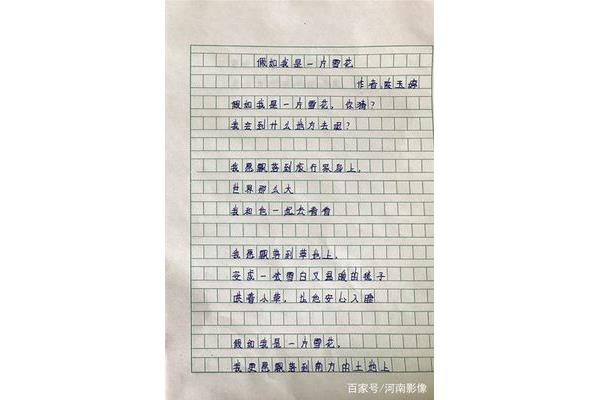 假如我是一片雪花
作者:陈玉婷
假如我是一片雪花,你猜?
我会到什么地方去呢?
我愿飘落到旅行家身上,
世界那么大
我和他一起去看看
我愿飘落到草地上,
变成一张雪白又温暖的毯子
哄着小草,让他安心入睡
假如我是一片雪花,
我更愿飘落到南方的土地上
百家号/河南影像